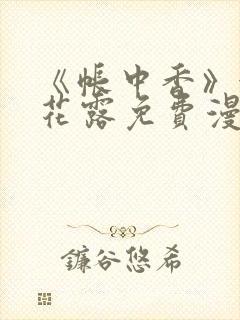 《帐中香》
花露免費漫
鐮谷悠希